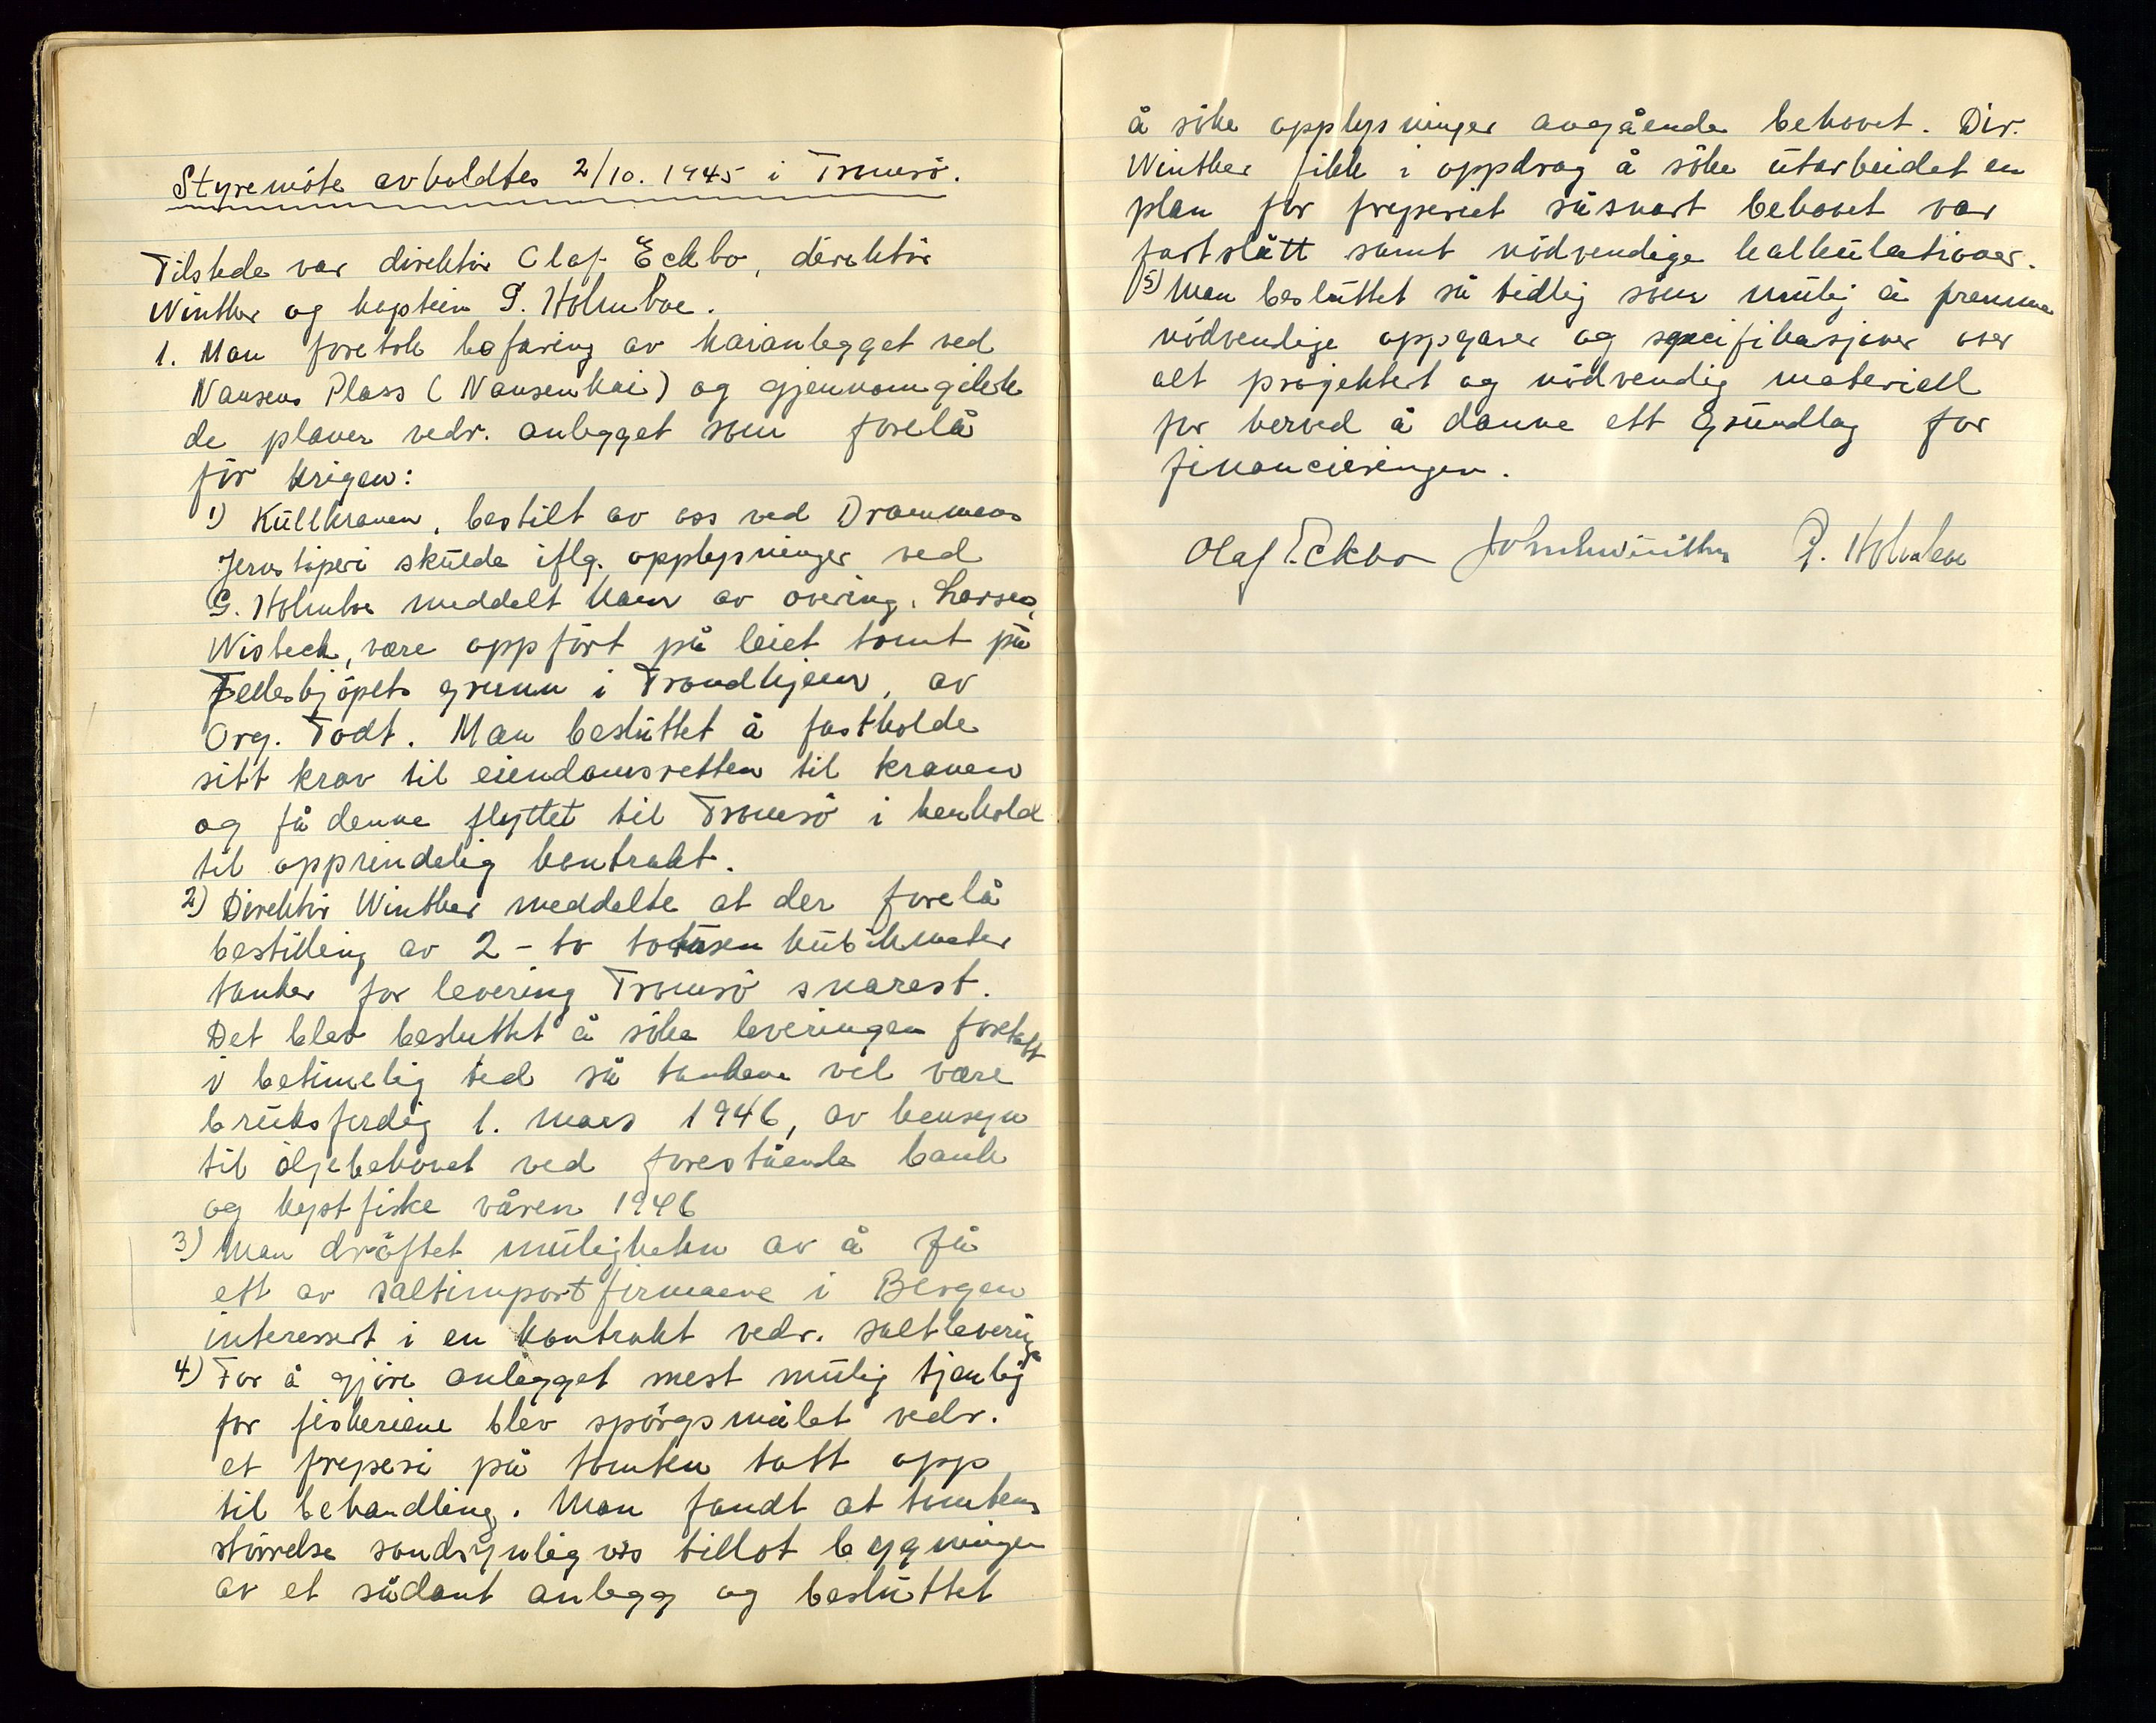 Styremöte avholdtes 2/10. 1945 i Tromsö.
Tilstede var direktör Olaf Eckbo, direktör
Winther og kaptein G. Holmboe.
1. Man foretok befaring av kaianlegget ved
Nansens Plass (Nansenkai) og gjennomgikk
de planer vedr. anlegget som forelå
för krigen:
1) Kullkranen, bestilt av oss ved Drammens
Jernstöperi skulde iflg. opplysninger ved
G. Holmboe meddelt ham av overing. Larsen,
Wisbech, være oppfört på leiet tomt på
Fellesbjöpets grunn i Trondhjem, av
Org. Todt. Man besluttet å fastholde
sitt krav til eiendomsretten til kranen
og få denne flyttet til Tromsö i henhold
til opprindelig kontrakt.
2) Direktör Winther meddelte at der forelå
bestilling av 2 - to totusen kubikmeter
tanker for levering Tromsö snarest.
Det blev besluttet å söke leveringen foretatt
i betimelig tid så tankene vil være
bruksferdig 1. mars 1946, av hensyn
til oljebehovet ved forestående bank
og kystfiske våren 1946
3) Man dröftet muligheten av å få
ett av saltimportfirmaene i Bergen
interessert i en kontrakt vedr. saltlevering
4) For å gjöre anlegget mest mulig tjenlig
for fiskeriene blev spörgsmålet vedr.
et fryseri på tomten tatt opp
til behandling. Man fandt at tomtens
störrelse sandsynligvis tillot bygningen
av et sådant anlegg og besluttet
å söke opplysninger angående behovet. Dir.
Winther fikk i oppdrag å söke utarbeidet en
plan for fryseriet såsnart behovet var
fastslått samt nödvendige kalkulationer.
5) Man besluttet så tidlig som mulig å fremme
nödvendige oppgaver og specifikasjoner over
alt projektert og nödvendig materiell
for herved å danne ett grundlag for
financieringen.
Olaf Eckbo John Winther G. Holmboe